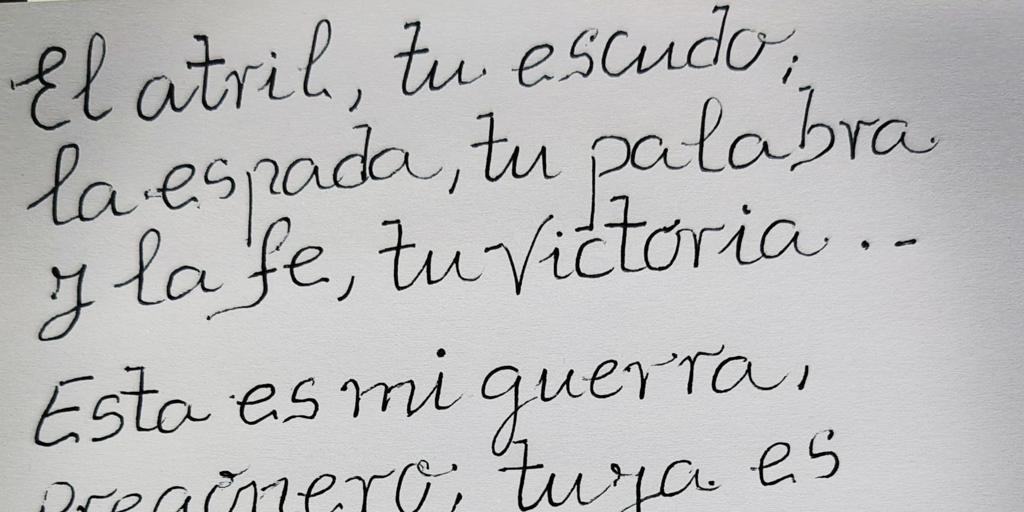 El atril, tu escudo;
la espada, tu palabra
y la fe, tu victoria...
Esta es mi guerra,
Pregonero; tuya es